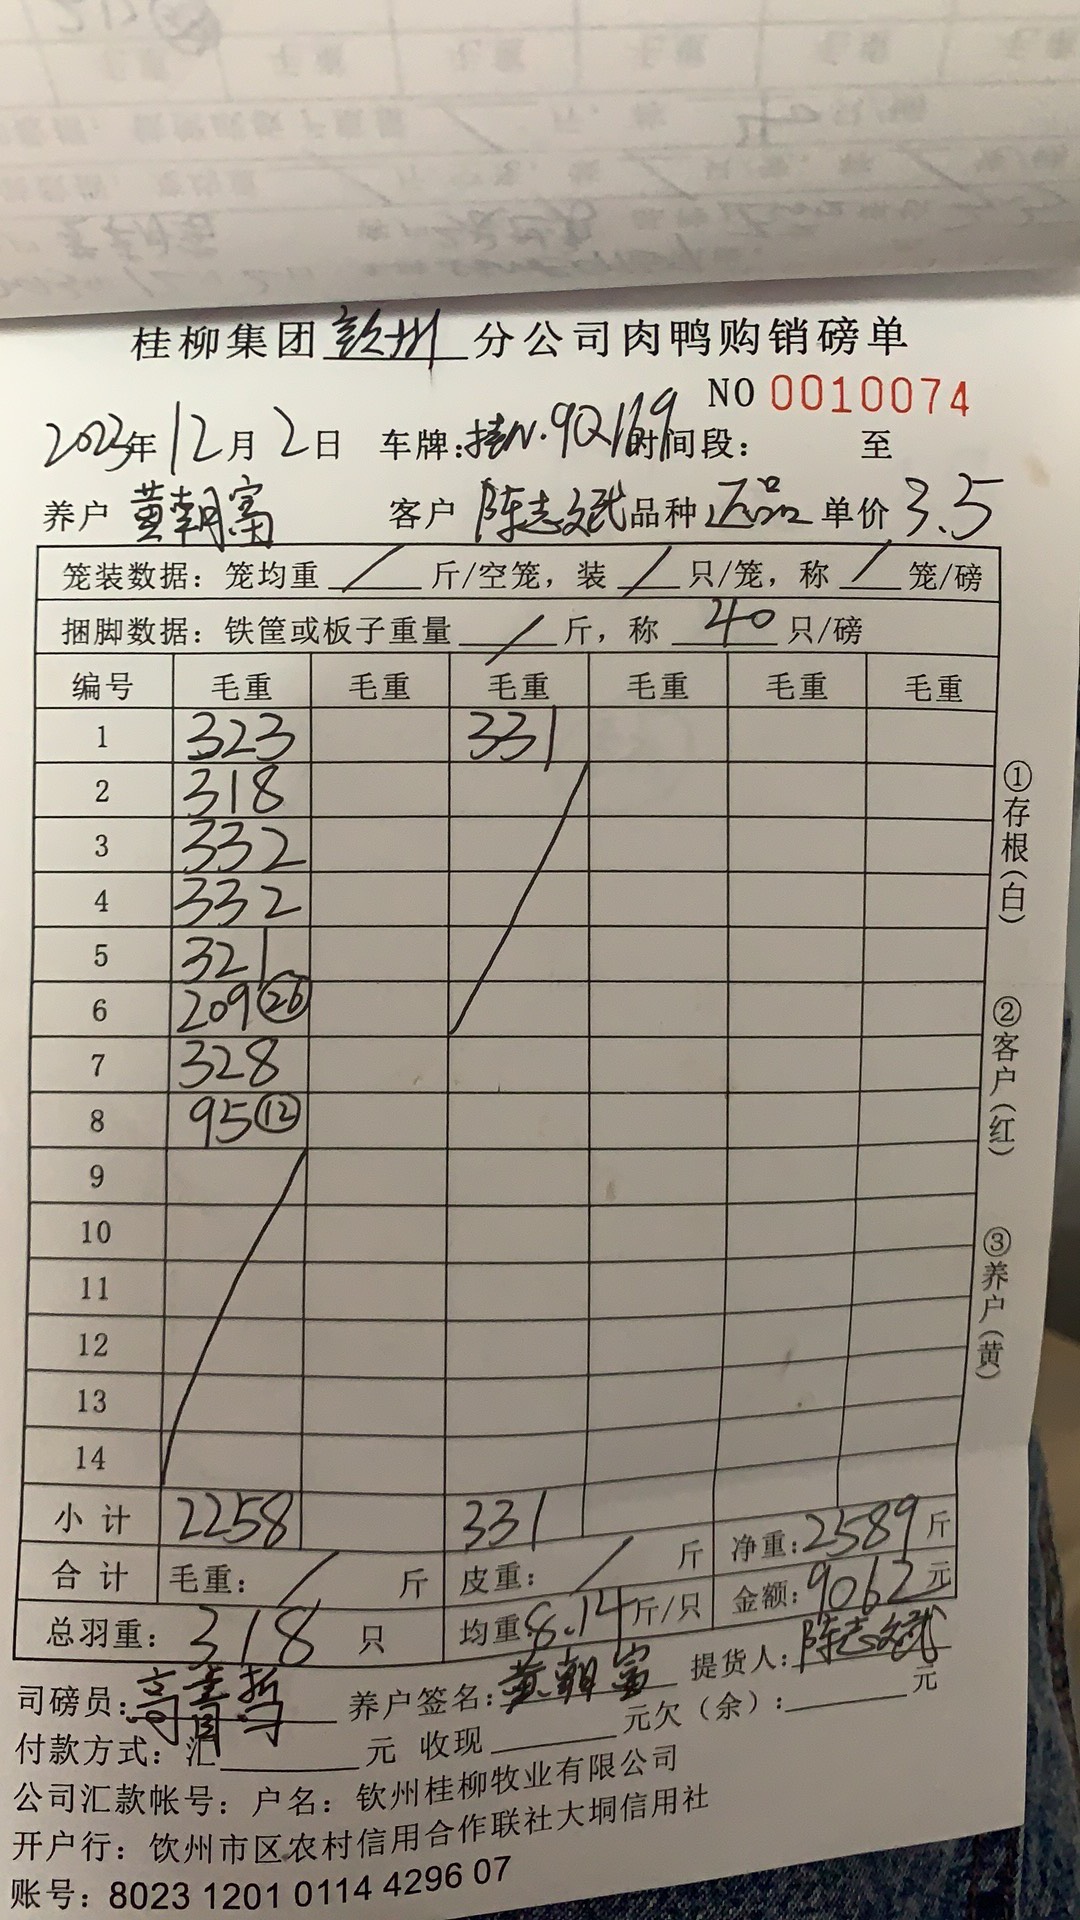 桂柳集团钦州分公司肉鸭购销磅单
NO 0010074
2023年12月2日 车牌:桂N·9Q169时间段: 至
养户 黄朝富 客户 陈志斌 品种 返品 单价 3.5
笼装数据:笼均重 / 斤/空笼,装 / 只/笼,称 / 笼/磅
捆脚数据:铁筐或板子重量 / 斤,称 40 只/磅
编号 毛重 毛重 毛重 毛重 毛重 毛重
1 323 331
2 318
3 332
4 332
5 321
6 209 ㉖
7 328
8 95 ⑫
9
10
11
12
13
14
小计 2258 331 净重:2589斤
合计 毛重: / 斤 皮重: / 斤 金额:9062元
总羽重:318只 均重:8.14斤/只
司磅员: 养户签名:黄朝富 提货人:陈志斌
付款方式:汇 元 收现 元欠(余): 元
公司汇款帐号:户名:钦州桂柳牧业有限公司
开户行:钦州市区农村信用合作联社大垌信用社
账号:8023 1201 0114 4296 07
①存根(白)
②客户(红)
③养户(黄)